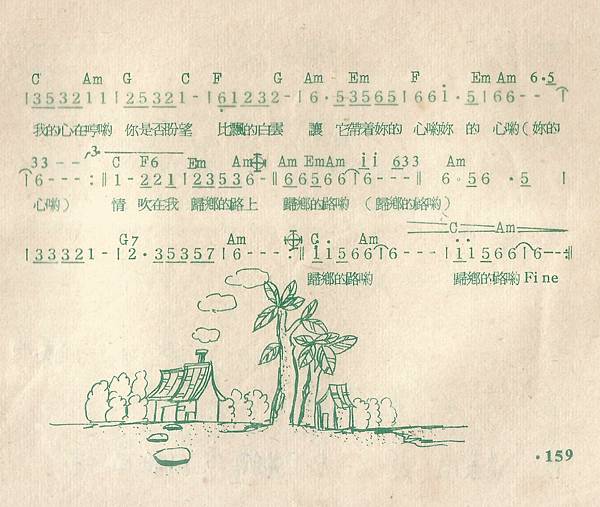 C Am G C F G Am Em F Em Am 6·5
|35321 1|25321-|61232-|6·53565|661·5|66--|
我的心在哼喲 你是否盼望 比飄的白雲 讓 它帶着妳的 心喲妳 的 心喲(妳的
33-- 3 C F6 Em Am Am Em Am ii 633 Am
|6---:‖1-221|23536-‖66566|6---|6·56·5|
心喲) 情 吹在我 歸鄉的路上 歸鄉的路喲 (歸鄉的路喲)
G7 Am C Am C Am
|33321-|2·35357|6---:‖11566|6---|11566|6--:‖
歸鄉的路喲 歸鄉的路喲 Fine
·159